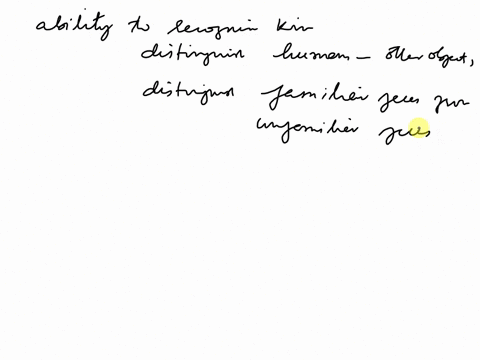 ability to recognin kin
distinguin human – other object,
distingush familier faces from
unfamilier faces